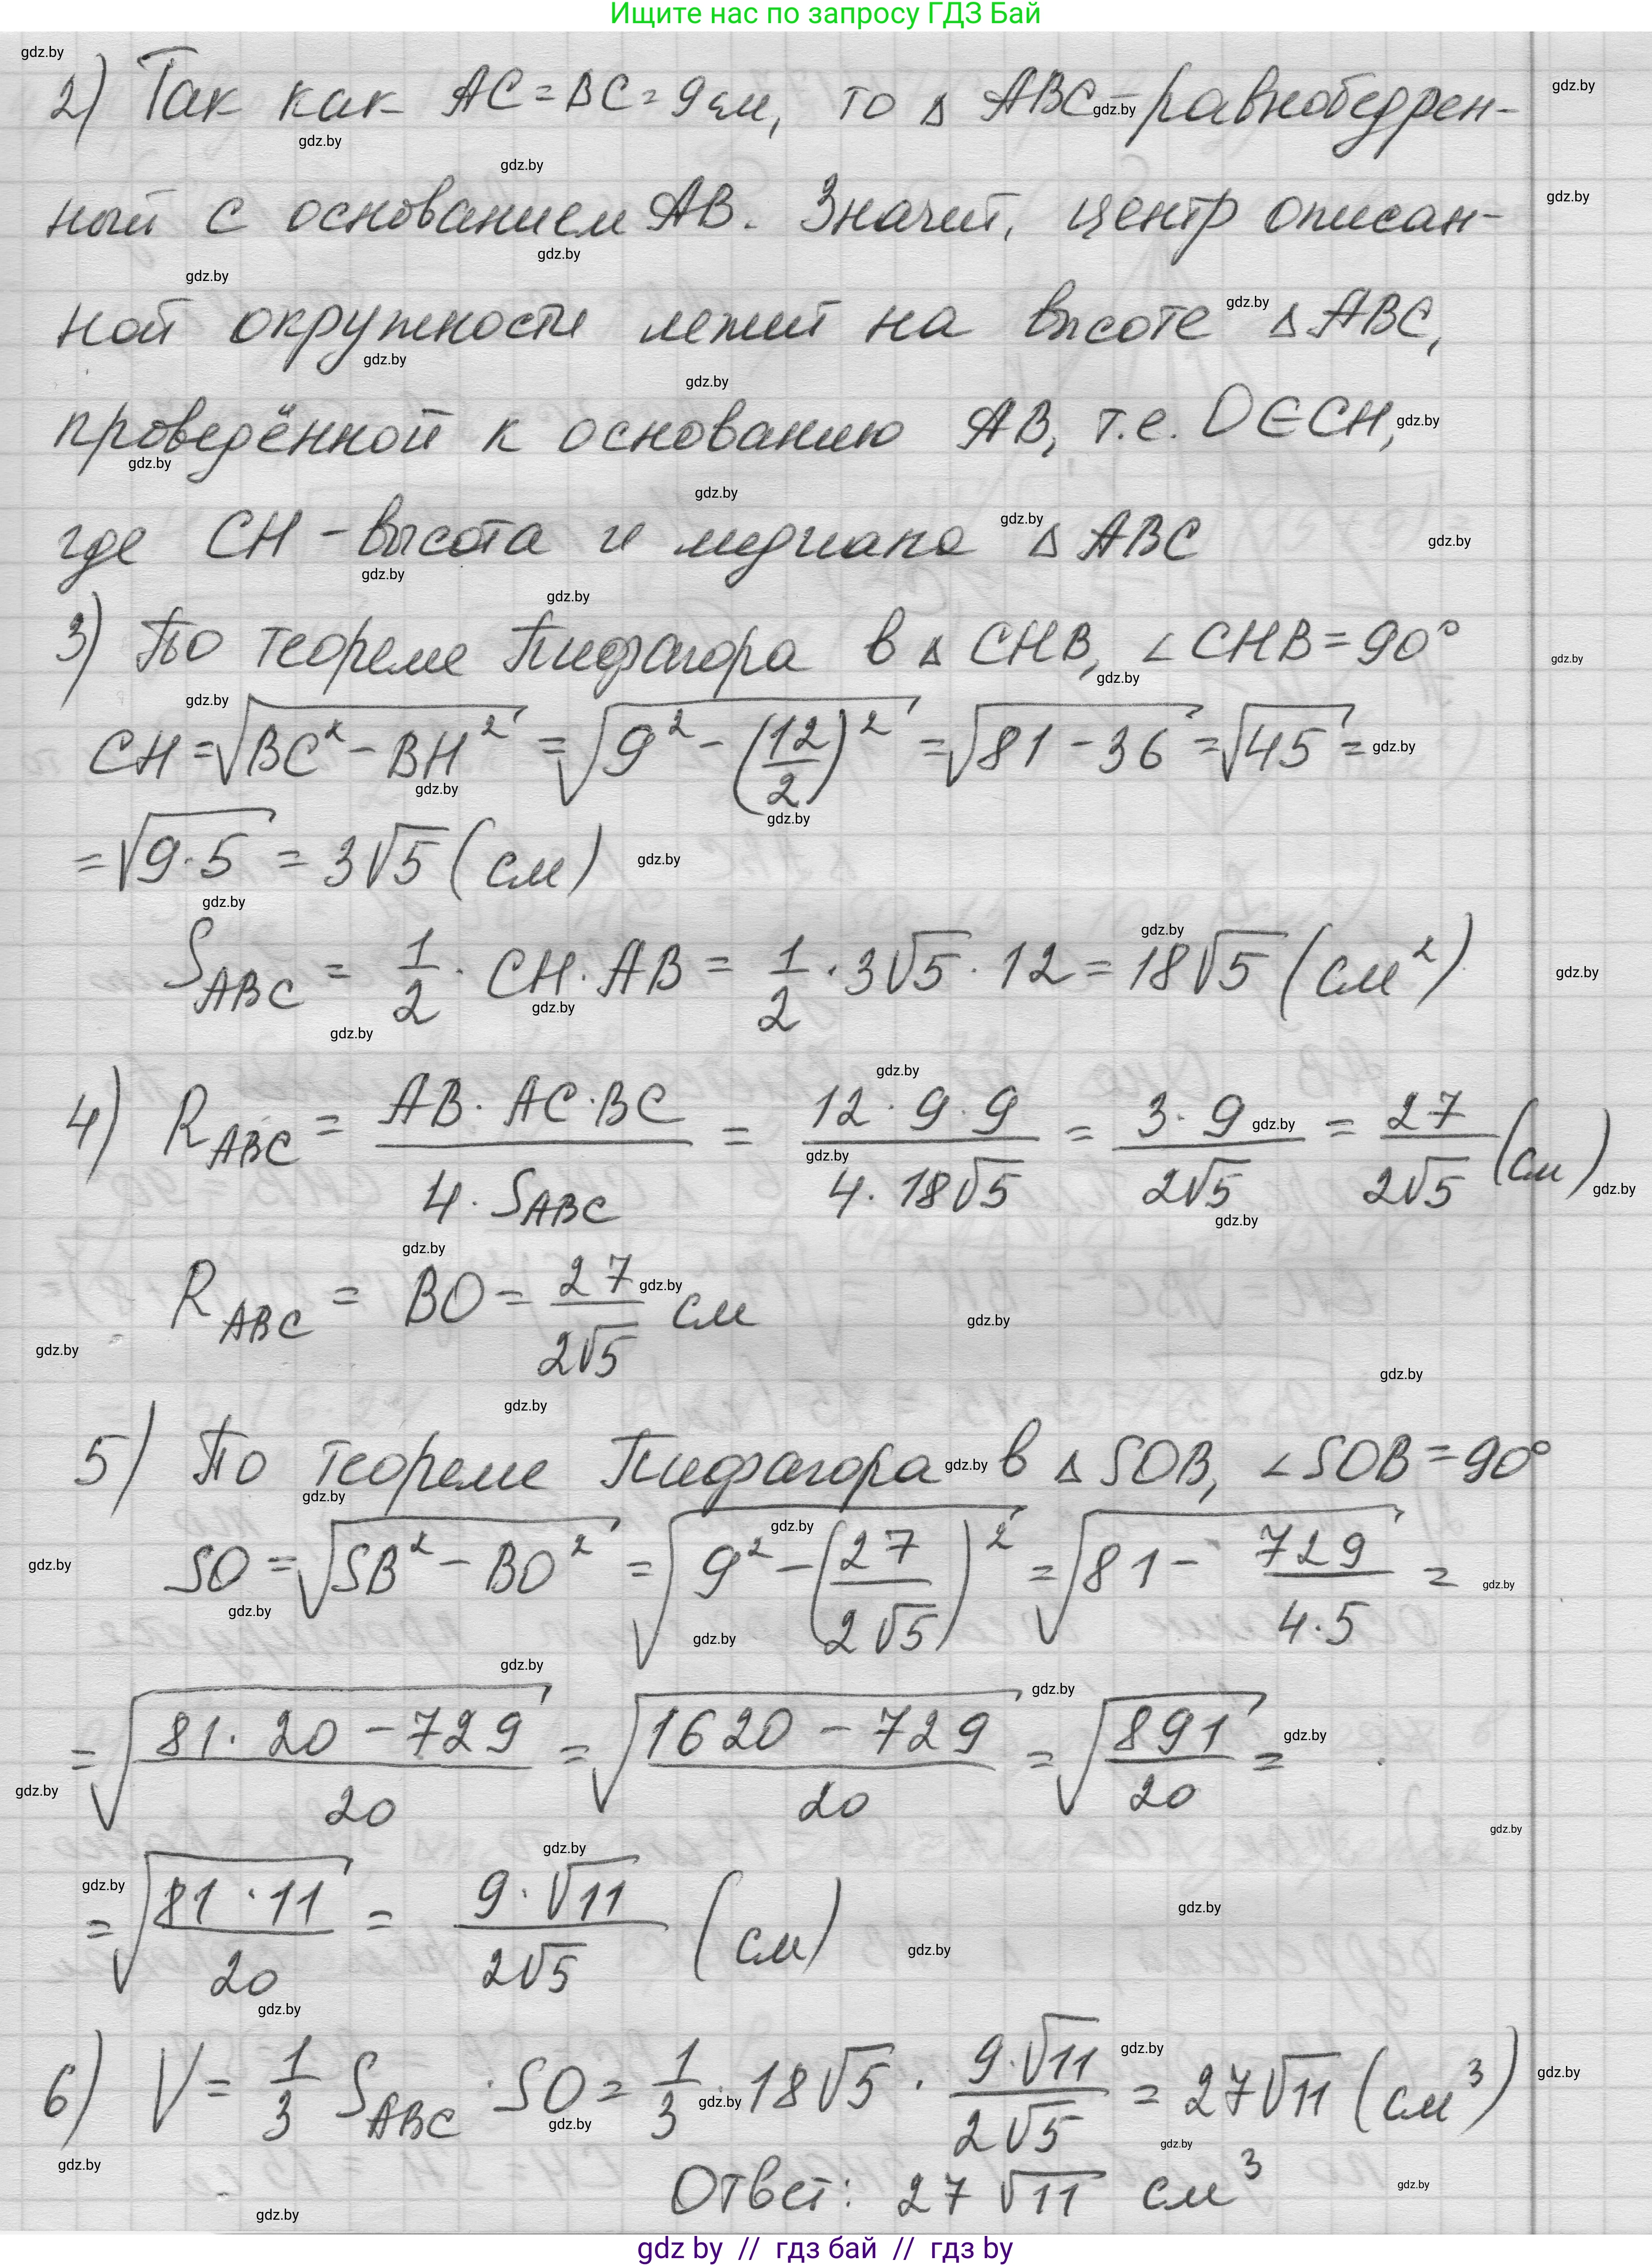 Ищите нас по запросу ГДЗ Бай
2) Так как AC = BC = 9 см, то △ ABC - равнобедрен-
ный с основанием AB. Значит, центр описан-
ной окружности лежит на высоте △ ABC,
проведённой к основанию AB, т.е. O ∈ CH,
где CH - высота и медиана △ ABC
3) По теореме Пифагора в △ CHB, ∠CHB = 90°
CH = √(BC² - BH²) = √(9² - (12/2)²) = √(81 - 36) = √45 =
= √(9·5) = 3√5 (см)
S_ABC = 1/2 · CH · AB = 1/2 · 3√5 · 12 = 18√5 (см²)
4) R_ABC = (AB · AC · BC)/(4 · S_ABC) = (12 · 9 · 9)/(4 · 18√5) = (3 · 9)/(2√5) = 27/(2√5) (см)
R_ABC = BO = 27/(2√5) см
5) По теореме Пифагора в △ SOB, ∠SOB = 90°
SO = √(SB² - BO²) = √(9² - (27/(2√5))²) = √(81 - 729/(4·5)) =
= √((81 · 20 - 729)/20) = √((1620 - 729)/20) = √(891/20) =
= √((81 · 11)/20) = (9 · √11)/(2√5) (см)
6) V = 1/3 S_ABC · SO = 1/3 · 18√5 · (9·√11)/(2√5) = 27√11 (см³)
Ответ: 27√11 см³
gdz by // гдз бай // гдз by